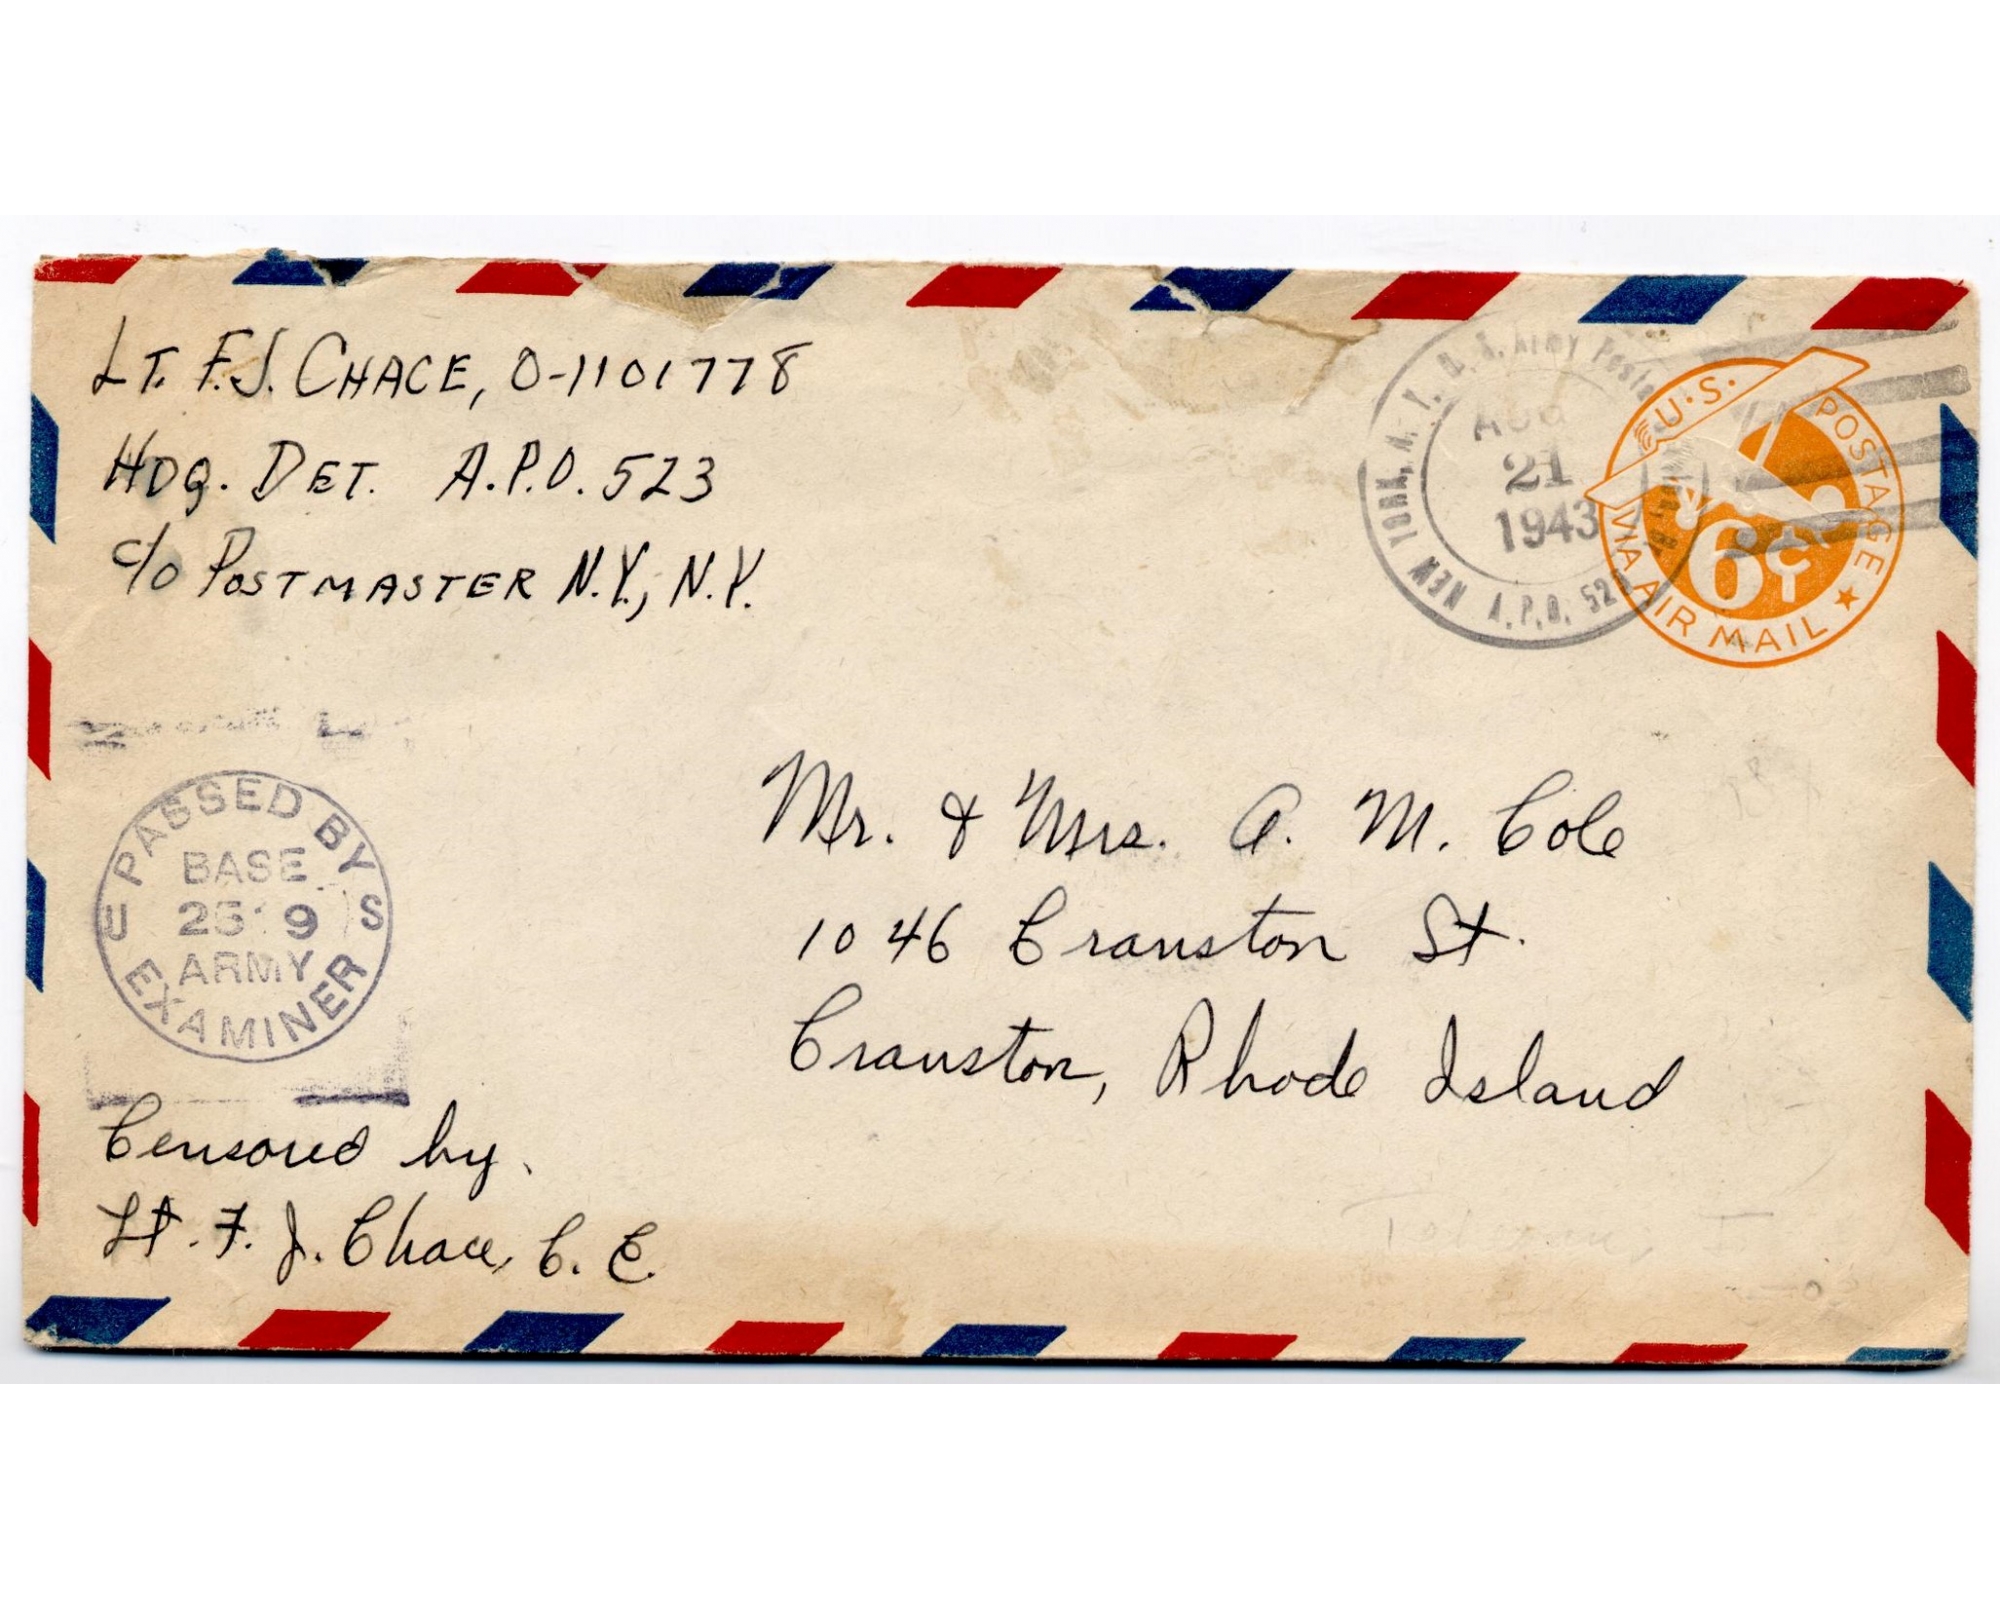 LT. F.J. CHACE, O-1101778
HDQ. DET. A.P.O. 523
c/o POSTMASTER N.Y., N.Y.
NEW YORK, N.Y. U.S. Army Postal
AUG
21
1943
A.P.O. 523
U.S. POSTAGE
6¢
VIA AIR MAIL
PASSED BY
BASE
U S
ARMY
EXAMINER
Mr. & Mrs. A. M. Cole
1046 Cranston St.
Cranston, Rhode Island
Censored by
Lt. F. J. Chace, C. E.